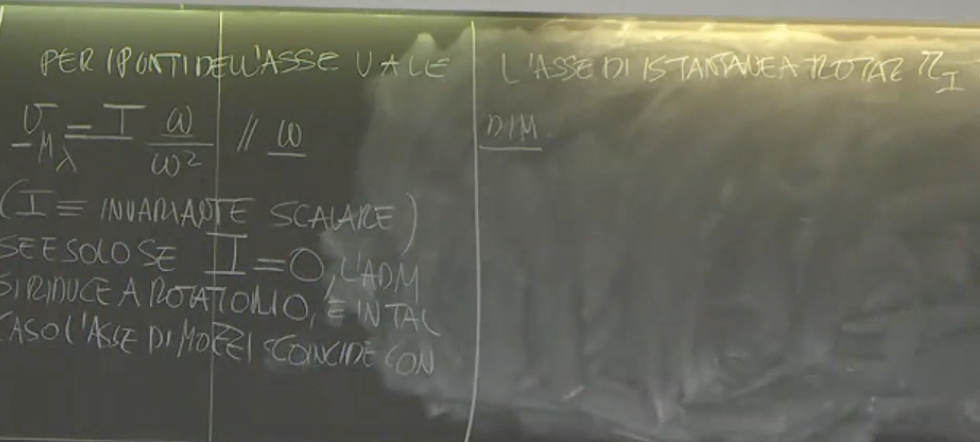 PER I PUNTI DELL'ASSE VALE
v_Mλ = I ω/ω² // ω
(I ≡ INVARIANTE SCALARE)
SE E SOLO SE I = 0, L'ADM
SI RIDUCE A ROTATORIO, E IN TAL
CASO L'ASSE DI MOZZI COINCIDE CON
L'ASSE DI ISTANTANEA ROTAZ r_I
DIM.